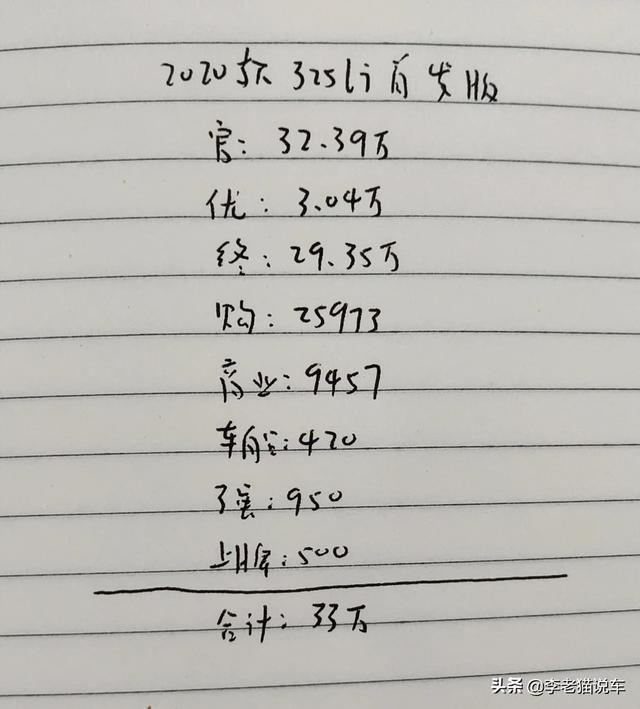 2020款 325li 首发版
官: 32.39万
优: 3.04万
终: 29.35万
购: 25973
商业: 9457
车船: 420
交强: 950
上牌: 500
合计: 33万
头条 @李老猫说车